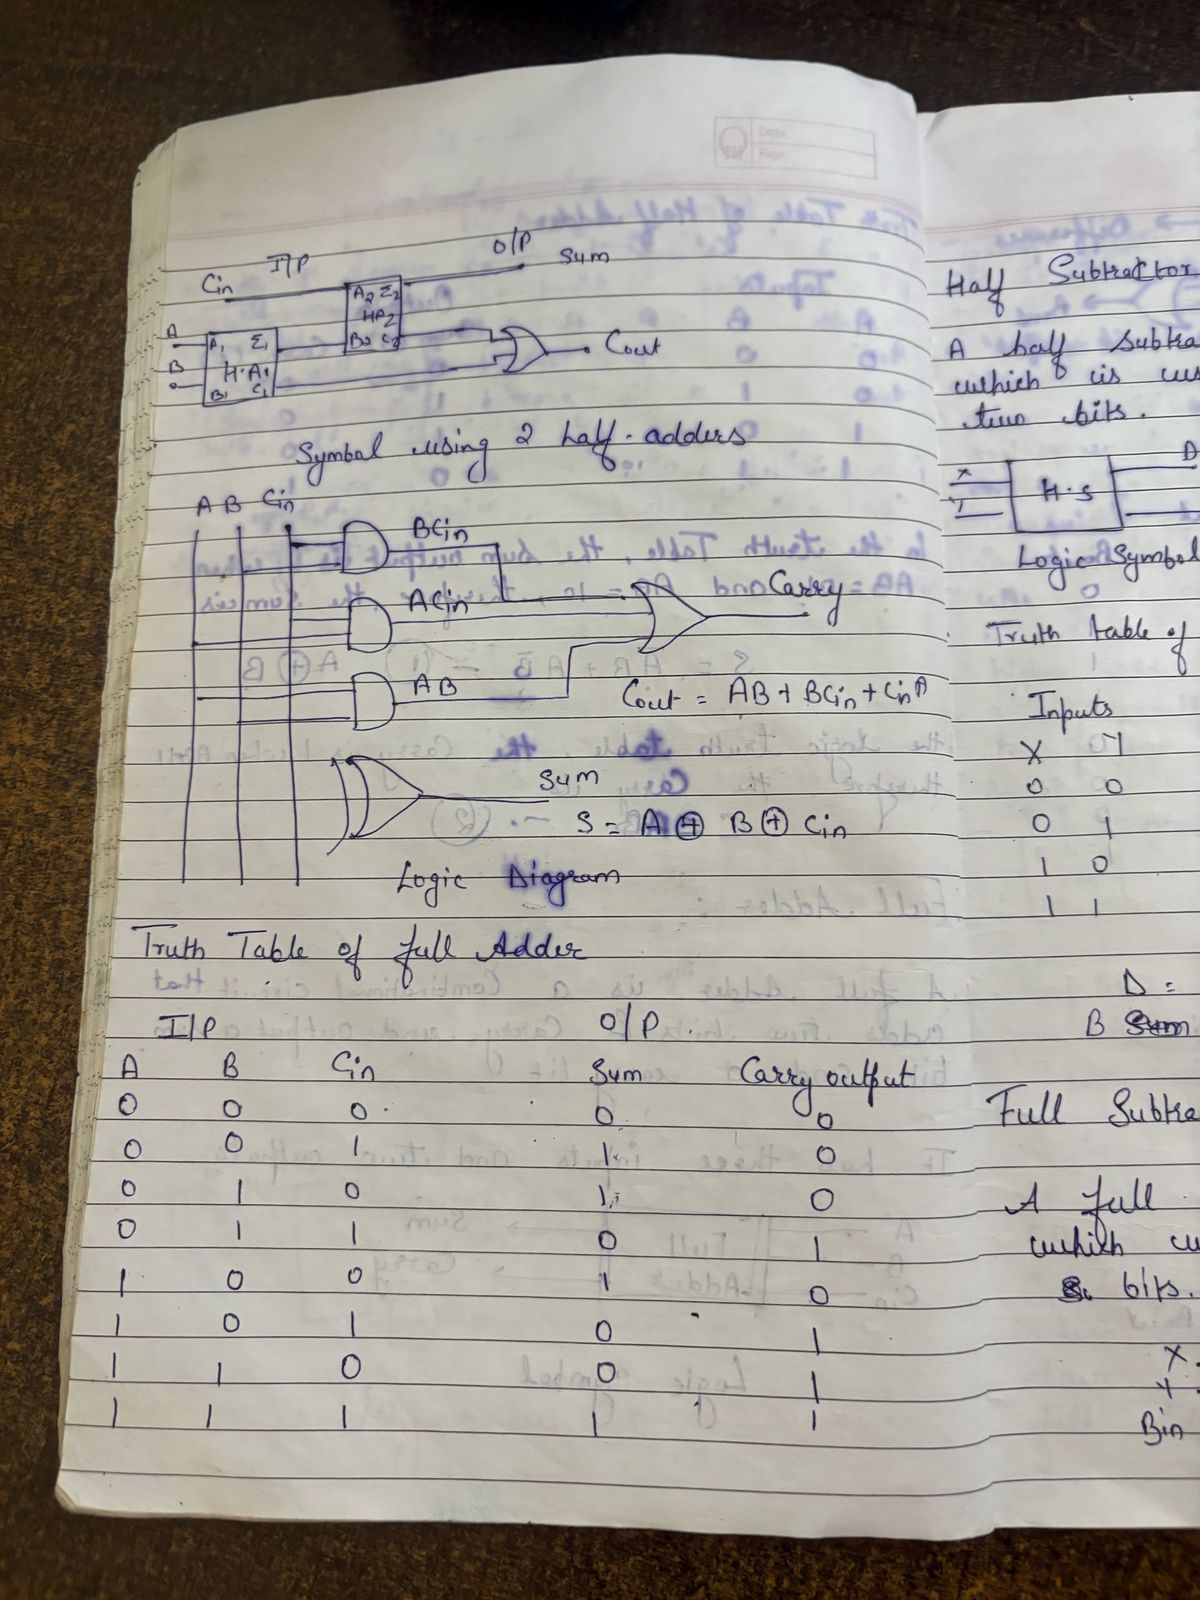 I/P
O/P
Cin
Sum
A
B
A1 Σ1
H·A1
B1 C1
A2 Σ2
HA2
B2 C2
Cout
Symbol using 2 half-adders
A B Cin
BCin
ACin
Carry
AB
Cout = AB + BCin + CinA
Sum
S = A ⊕ B ⊕ Cin
Logic Diagram
Truth Table of full Adder
I/P O/P.
A B Cin Sum Carry output
0 0 0 0 0
0 0 1 1 0
0 1 0 1 0
0 1 1 0 1
1 0 0 1 0
1 0 1 0 1
1 1 0 0 1
1 1 1 1 1
Half Subtractor
A half subtra
which is us
two bits.
X
Y
H·S
D
Logic Symbol
Truth table of
Inputs
X Y
0 0
0 1
1 0
1 1
D =
B
Full Subtra
A full
which
bits.
X
Y
Bin